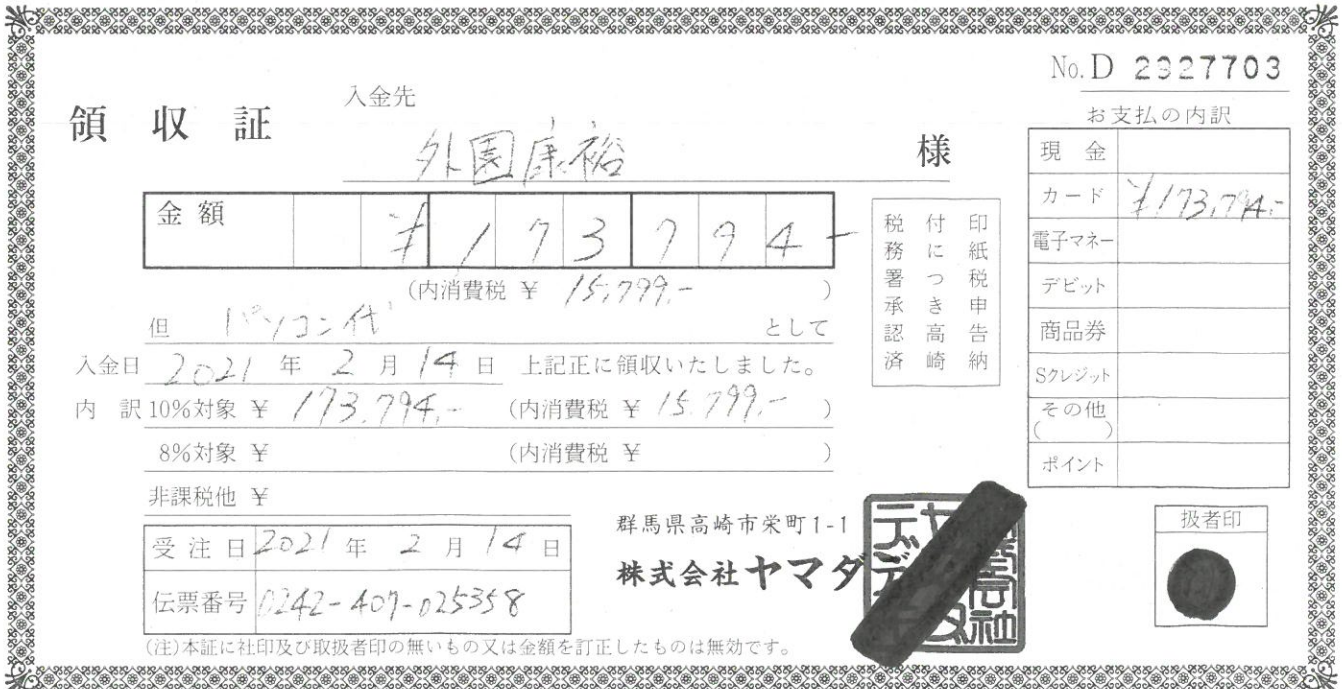 No. D 2927703
領収証
入金先
外園康裕 様
金額 ¥173794-
(内消費税 ¥ 15,799.- )
但 パソコン代 として
入金日 2021年2月14日 上記正に領収いたしました。
内訳 10%対象 ¥ 173,794.- (内消費税 ¥ 15,799.- )
8%対象 ¥ (内消費税 ¥ )
非課税他 ¥
受注日 2021年2月14日
伝票番号 0242-407-025358
(注)本証に社印及び取扱者印の無いもの又は金額を訂正したものは無効です。
印紙税申告納
付につき高崎
税務署承認済
群馬県高崎市栄町1-1
株式会社ヤマダデ
お支払の内訳
現金
カード ¥173,794.-
電子マネー
デビット
商品券
Sクレジット
その他
( )
ポイント
扱者印